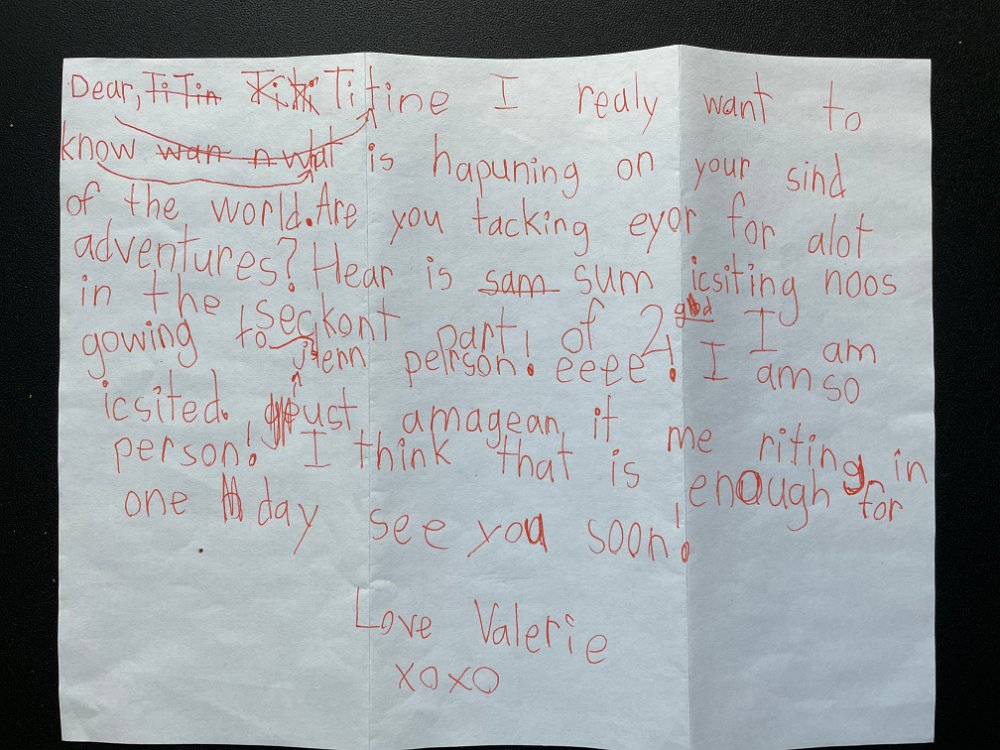 Dear, TiTin Titi Titine I realy want to
know wan n wtat is hapuning on your sind
of the world. Are you tacking eyor for alot
adventures? Hear is sam sum icsiting noos
in the seckont part of 2 I am
gowing to person! eeee! I am so
icsited. just amagean if me riting in
person! I think that is enough for
one day see you soon!
Love Valerie
xoxo